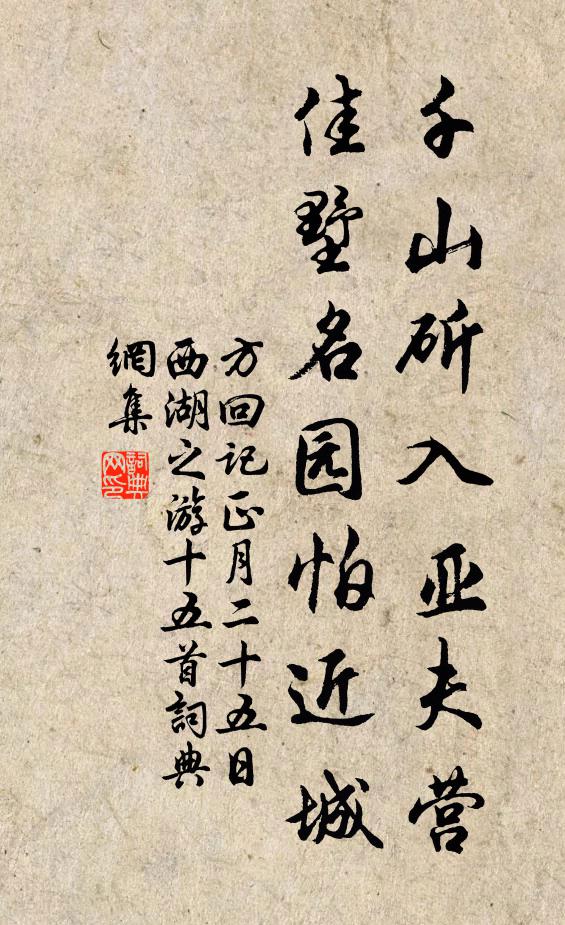 千山斫入亚夫营
佳墅名园怕近城
方回记正月二十五日
西湖之游十五首詞典
網集
詞典
网印